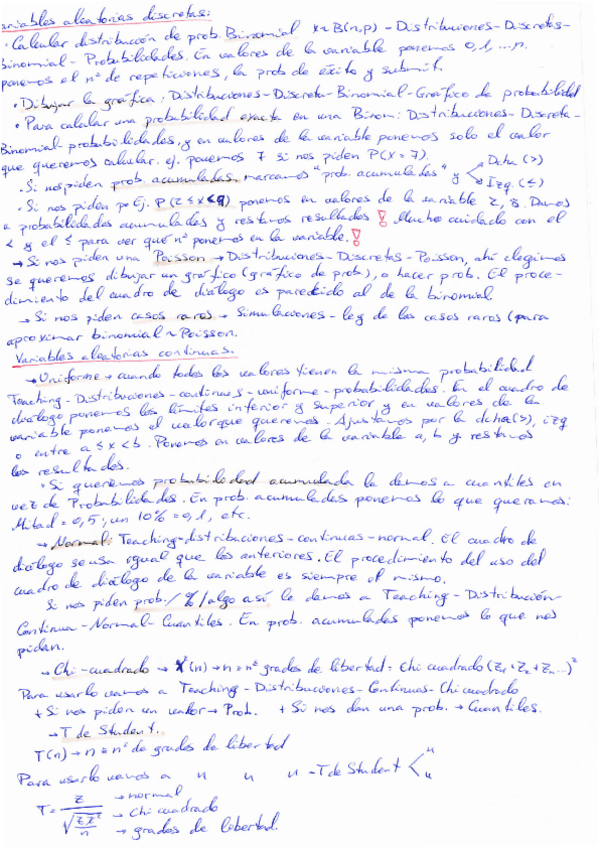 ariables aleatorias discretas:
· Calcular distribución de prob. Binomial x~B(n,p) - Distribuciones - Discretas-
Binomial - Probabilidades. En valores de la variable ponemos 0,1,...n.
ponemos el nº de repeticiones, la prob de éxito y submit.
· Dibujar la gráfica: Distribuciones - Discreta - Binomial - Gráfico de probabilidad
· Para calcular una probabilidad exacta en una Binom: Distribuciones - Discreta -
Binomial - probabilidades, y en valores de la variable ponemos solo el valor
que queremos calcular. ej. ponemos 7 si nos piden P(X=7).
· Si nos piden prob. acumuladas marcamos "prob acumuladas" y Dcha (>)
Izq. (≤)
· Si nos piden p. Ej. P(2≤x<9) ponemos en valores de la variable 2, 8. Damos
a probabilidades acumuladas y restamos resultados! Mucho cuidado con el
< y el ≤ para ver que nº ponemos en la variable.!
→ Si nos piden una Poisson → Distribuciones - Discretas - Poisson, ahí elegimos
se queremos dibujar un gráfico (gráfico de prob), o hacer prob. El proce-
dimiento del cuadro de diálogo es parecido al de la binomial
→ Si nos piden casos raros → Simulaciones - ley de los casos raros (para
aproximar binomial ~ Poisson.
Variables aleatorias continuas.
→ Uniforme → cuando todos los valores tienen la misma probabilidad
Teaching - Distribuciones - continuas - uniforme - probabilidades. En el cuadro de
diálogo ponemos los límites inferior y superior y en valores de la
variable ponemos el valor que queremos. Ajustamos por la dcha(>), izq
o entre a≤x<b. Ponemos en valores de la variable a, b y restamos
los resultados.
· Si queremos probabilidad acumulada la damos a cuantiles en
vez de Probabilidades. En prob. acumuladas ponemos lo que queramos:
Mitad = 0,5; un 10% = 0,1, etc.
→ Normal: Teaching - distribuciones - continuas - normal. El cuadro de
diálogo se usa igual que los anteriores. El procedimiento del uso del
cuadro de diálogo de la variable es siempre el mismo.
Si nos piden prob./%/algo así le damos a Teaching - Distribución -
Continua - Normal - Cuantiles. En prob. acumuladas ponemos lo que nos
pidan.
→ Chi-cuadrado → X(n) → n = nº grados de libertad - Chi cuadrado (Z1+Z2+Zn...)²
Para usarlo vamos a Teaching - Distribuciones - Continuas - Chi cuadrado
+ Si nos piden un valor → Prob. + Si nos dan una prob. → Cuantiles.
→ T de Student.
T(n) → n = nº de grados de libertad
Para usarlo vamos a " " " - T de Student < "
"
T = Z → normal
√ZX² → Chi cuadrado
n → grados de libertad.